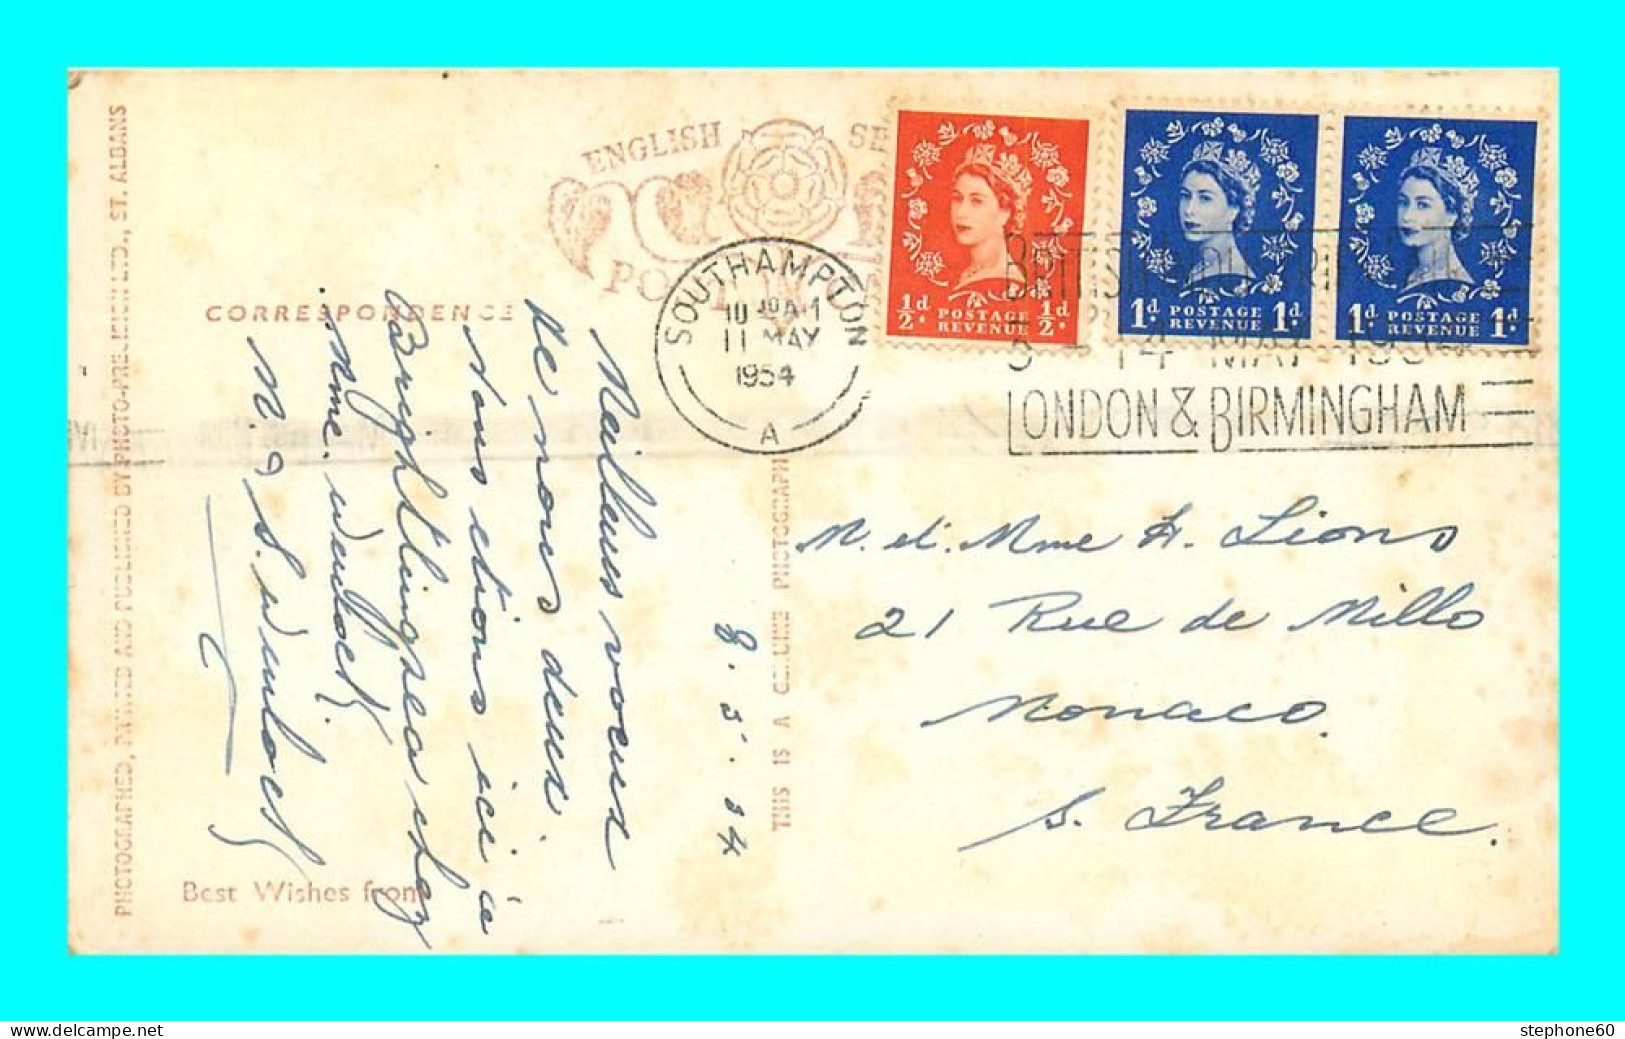 PHOTOGRAPHED, PRINTED AND PUBLISHED BY PHOTO-PRECISION LTD., ST. ALBANS
ENGLISH SE
CORRESPONDENCE
SOUTHAMPTON
11 MAY
1954
A
½d. POSTAGE REVENUE ½d.
1d. POSTAGE REVENUE 1d.
1d. POSTAGE REVENUE 1d.
BRITISH INDUSTRIES
3 - 14 MAY 1954
LONDON & BIRMINGHAM
Meilleurs voeux
de nous deux.
Nous etions ici a
Brightlingsea chez
Mme.
M. &
8.5.54
THIS IS A GENUINE PHOTOGRAPH
M. et. Mme H. Lions
21 Rue de Millo
Monaco.
S. France.
Best Wishes from
www.delcampe.net
stephone60